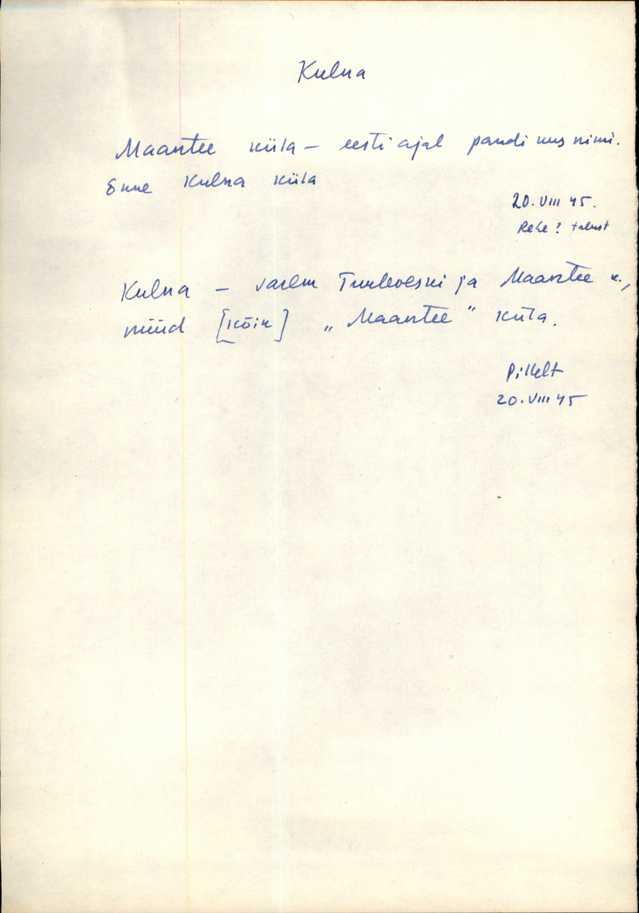 Kulna
Maantee küla – eesti ajal pandi uus nimi.
Enne Kulna küla
20. VIII 45.
Rehe? talust
Kulna – varem ja Maantee k.,
nüüd [kõik] „Maantee" küla.
Pillelt
20. VIII 45